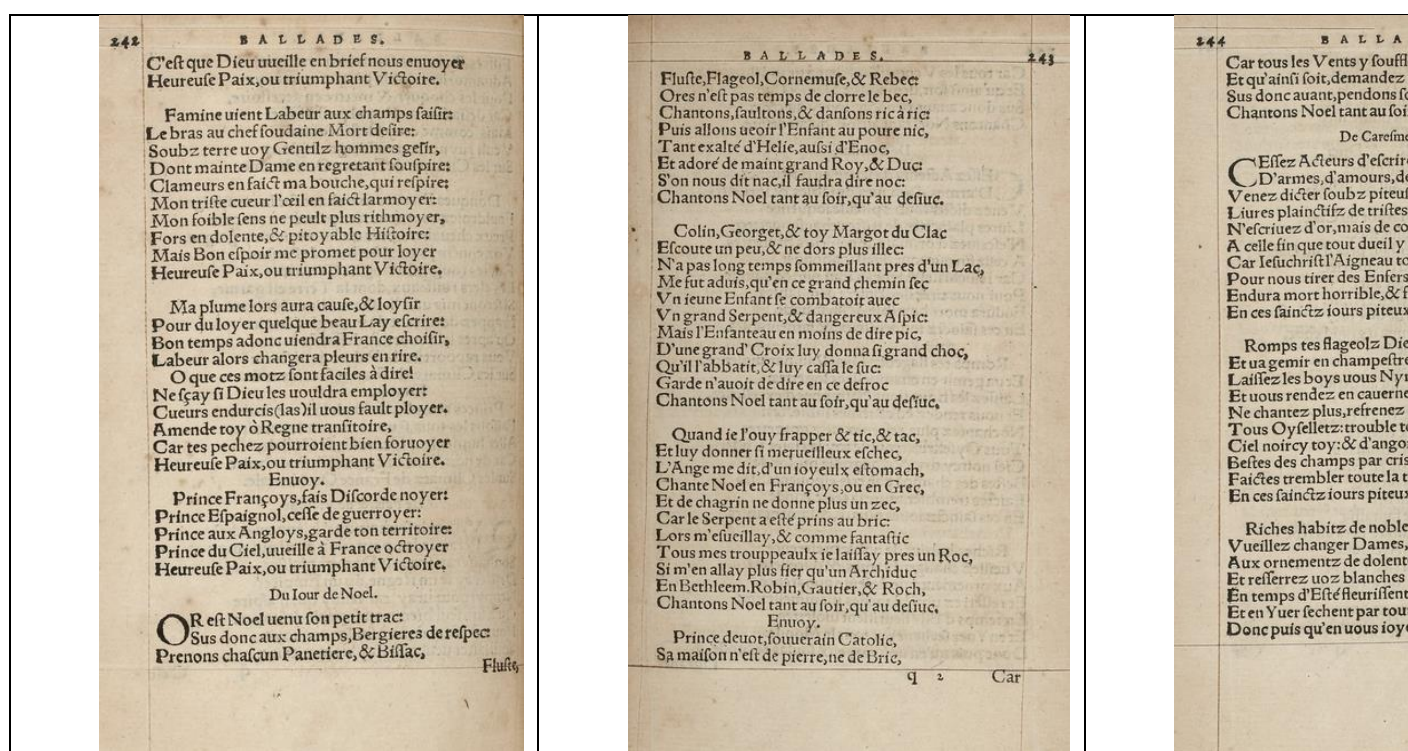 242
BALLADES.
C'eſt que Dieu uueille en brief nous enuoyer
Heureuſe Paix, ou triumphant Victoire.
Famine uient Labeur aux champs ſaiſir:
Le bras au chef ſoudaine Mort deſire:
Soubz terre uoy Gentilz hommes geſir,
Dont mainte Dame en regretant ſouſpire:
Clameurs en faict ma bouche, qui reſpire:
Mon triſte cueur l'œil en faict larmoyer:
Mon foible ſens ne peult plus rithmoyer,
Fors en dolente, & pitoyable Hiſtoire:
Mais Bon eſpoir me promet pour loyer
Heureuſe Paix, ou triumphant Victoire.
Ma plume lors aura cauſe, & loyſir
Pour du loyer quelque beau Lay eſcrire:
Bon temps adonc uiendra France choiſir,
Labeur alors changera pleurs en rire.
O que ces motz ſont faciles à dire!
Ne ſçay ſi Dieu les uouldra employer:
Cueurs endurcis (las) il uous fault ployer.
Amende toy ò Regne tranſitoire,
Car tes pechez pourroient bien foruoyer
Heureuſe Paix, ou triumphant Victoire.
Enuoy.
Prince Françoys, fais Diſcorde noyer:
Prince Eſpaignol, ceſſe de guerroyer:
Prince aux Angloys, garde ton territoire:
Prince du Ciel, uueille à France octroyer
Heureuſe Paix, ou triumphant Victoire.
Du Iour de Noel.
OR eſt Noel uenu ſon petit trac:
Sus donc aux champs, Bergieres de reſpec:
Prenons chaſcun Panetiere, & Biſſac,
Fluſte,
BALLADES.
243
Fluſte, Flageol, Cornemuſe, & Rebec:
Ores n'eſt pas temps de clorre le bec,
Chantons, ſaultons, & danſons ric à ric:
Puis allons ueoir l'Enfant au poure nic,
Tant exalté d'Helie, auſſi d'Enoc,
Et adoré de maint grand Roy, & Duc:
S'on nous dit nac, il faudra dire noc:
Chantons Noel tant au ſoir, qu'au deſiuc.
Colin, Georget, & toy Margot du Clac
Eſcoute un peu, & ne dors plus illec:
N'a pas long temps ſommeillant pres d'un Lac,
Me fut aduis, qu'en ce grand chemin ſec
Vn ieune Enfant ſe combatoit auec
Vn grand Serpent, & dangereux Aſpic:
Mais l'Enfanteau en moins de dire pic,
D'une grand' Croix luy donna ſi grand choc,
Qu'il l'abbatit, & luy caſſa le ſuc:
Garde n'auoit de dire en ce defroc
Chantons Noel tant au ſoir, qu'au deſiuc.
Quand ie l'ouy frapper & tic, & tac,
Et luy donner ſi merueilleux eſchec,
L'Ange me dit, d'un ioyeulx eſtomach,
Chante Noel en Françoys, ou en Grec,
Et de chagrin ne donne plus un zec,
Car le Serpent a eſté prins au bric:
Lors m'eſueillay, & comme fantaſtic
Tous mes trouppeaulx ie laiſſay pres un Roc,
Si m'en allay plus fier qu'un Archiduc
En Bethleem. Robin, Gautier, & Roch,
Chantons Noel tant au ſoir, qu'au deſiuc.
Enuoy.
Prince deuot, ſouuerain Catolic,
Sa maiſon n'eſt de pierre, ne de Bric,
q 2 Car
244
BALLA
Car tous les Vents y ſouffl
Et qu'ainſi ſoit, demandez
Sus donc auant, pendons ſo
Chantons Noel tant au ſoi
De Careſme
CEſſez Acteurs d'eſcrire
D'armes, d'amours, de
Venez dicter ſoubz piteuſ
Liures plainctifz de triſtes
N'eſcriuez d'or, mais de co
A celle fin que tout dueil y
Car Ieſuchriſt l'Aigneau to
Pour nous tirer des Enfers
Endura mort horrible, & f
En ces ſainctz iours piteux
Romps tes flageolz Die
Et ua gemir en champeſtre
Laiſſez les boys uous Nym
Et uous rendez en cauerne
Ne chantez plus, refrenez
Tous Oyſelletz: trouble te
Ciel noircy toy: & d'angoi
Beſtes des champs par cris
Faictes trembler toute la t
En ces ſainctz iours piteux
Riches habitz de noble
Vueillez changer Dames,
Aux ornementz de dolent
Et reſſerrez uoz blanches
En temps d'Eſté fleuriſſent
Et en Yuer ſechent par tou
Donc puis qu'en uous ioye